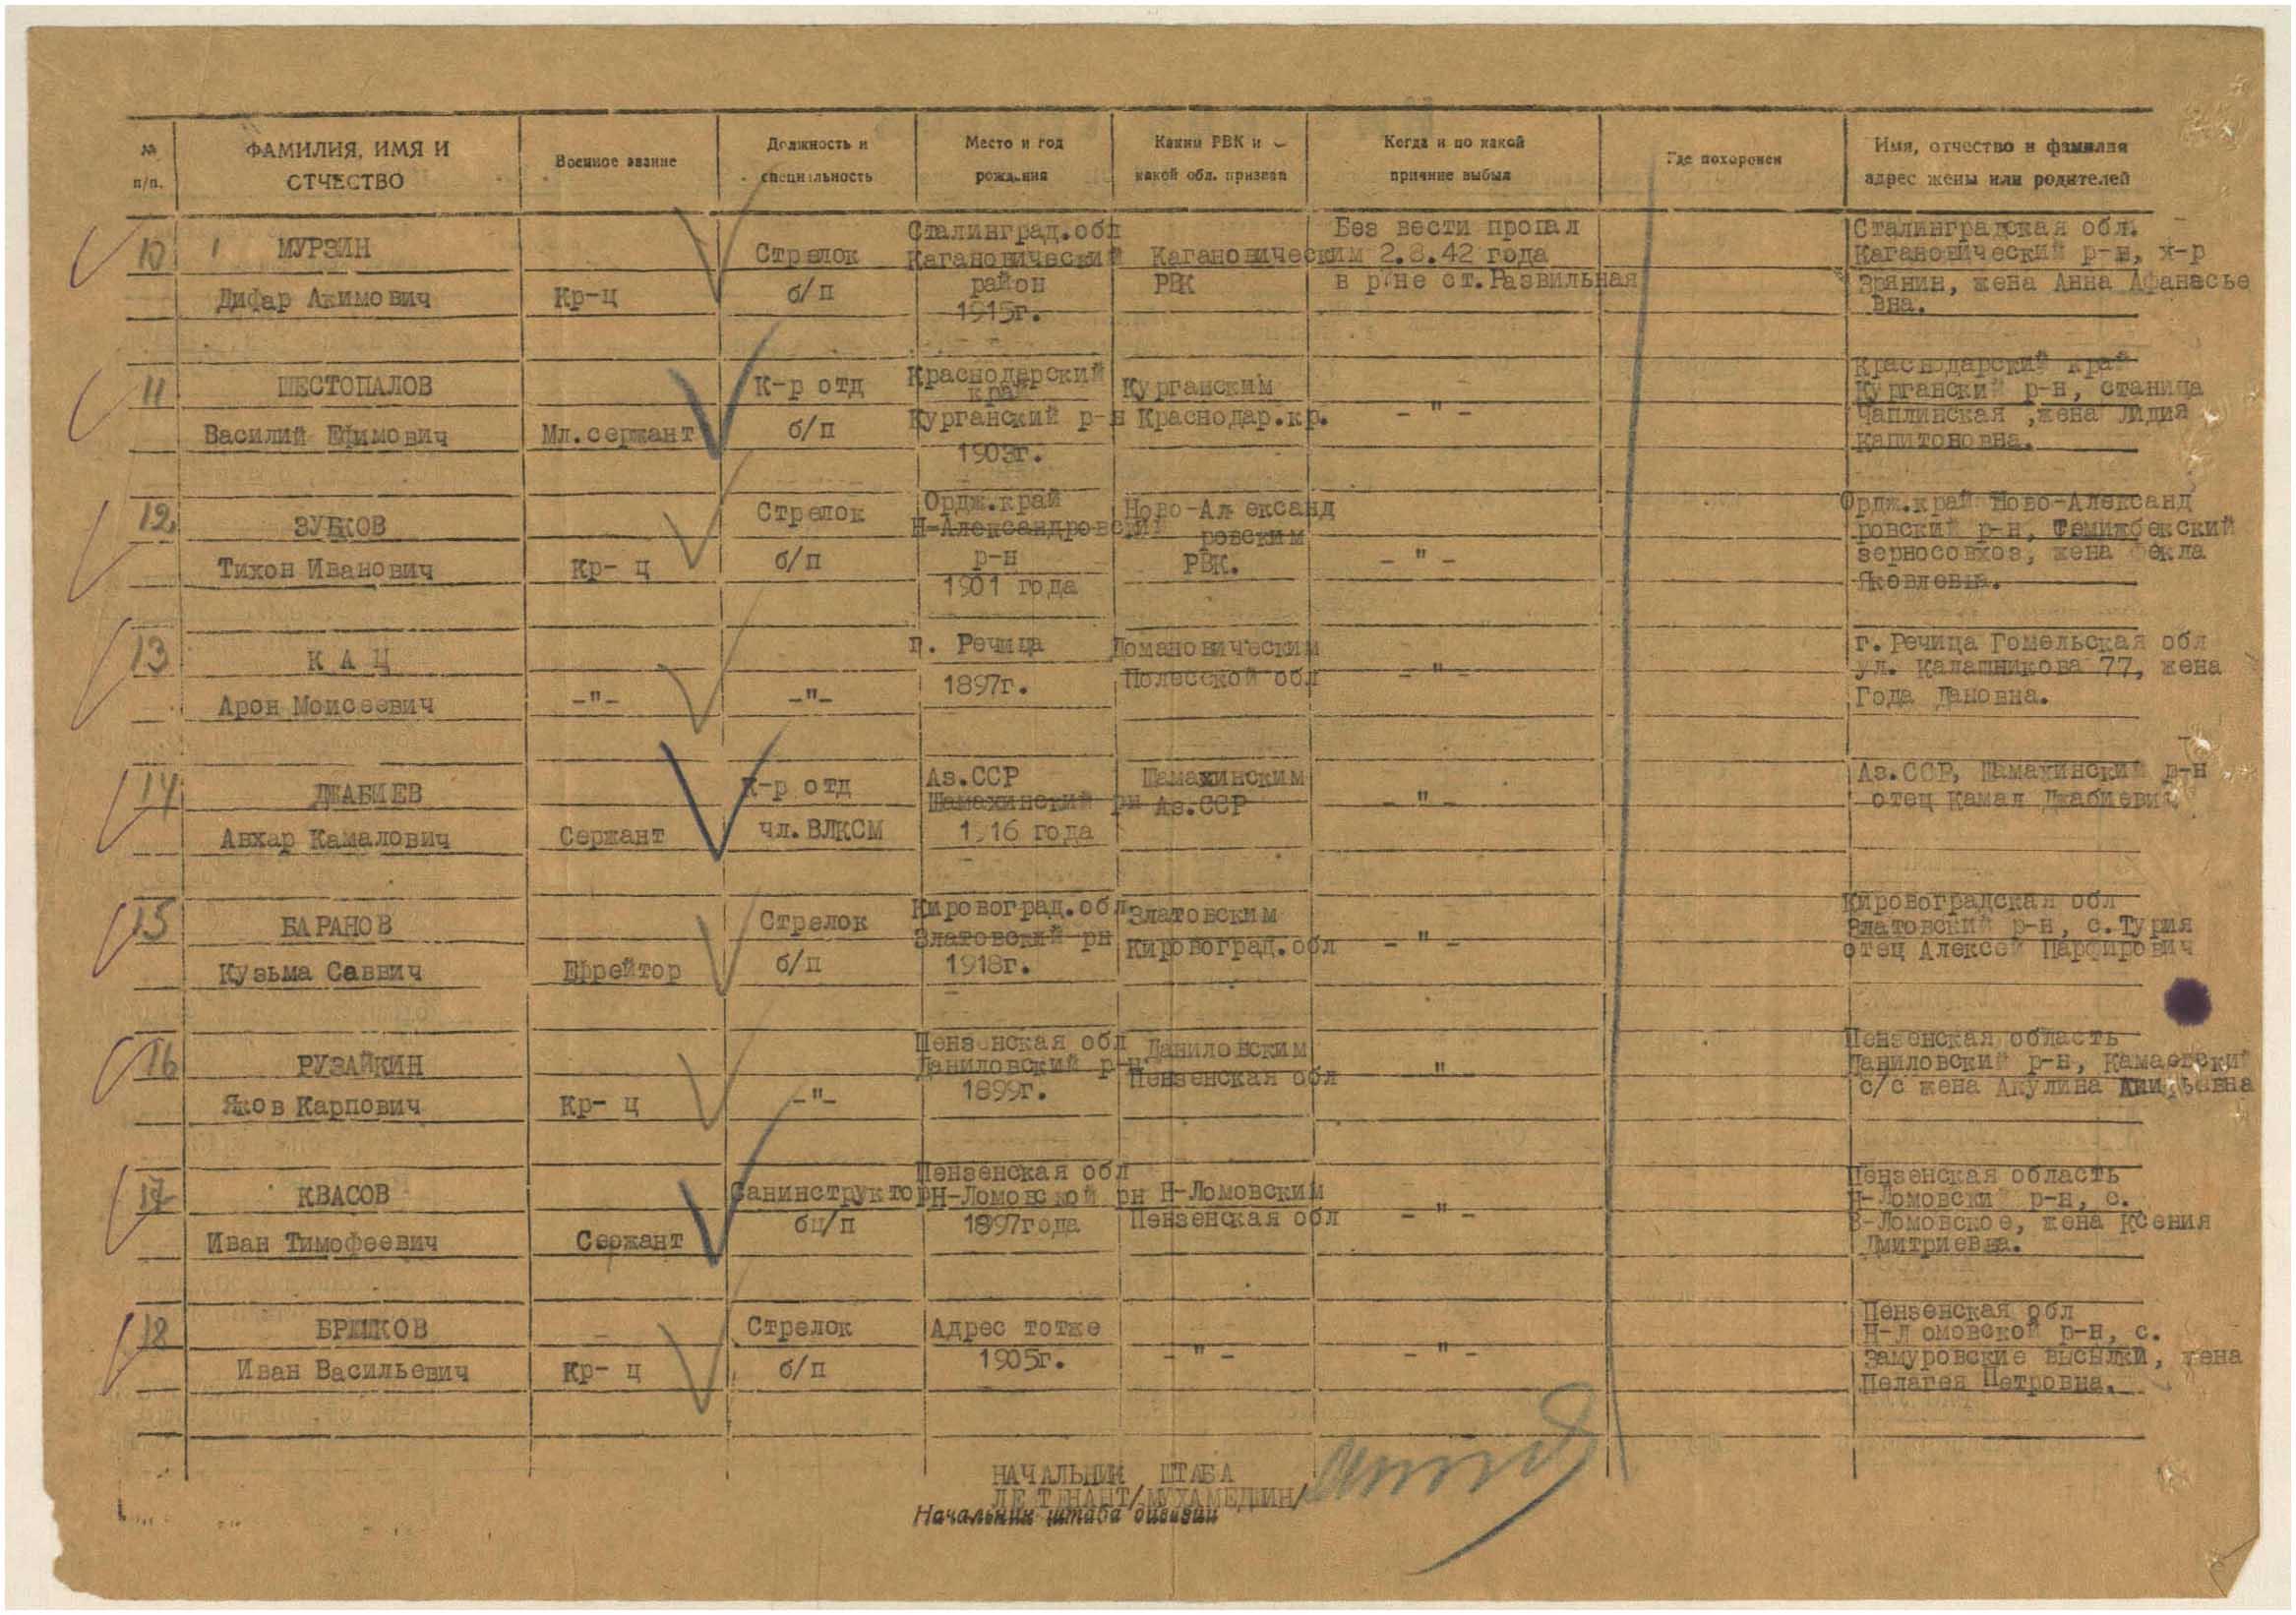 № п/п.
ФАМИЛИЯ, ИМЯ И ОТЧЕСТВО
Военное звание
Должность и специальность
Место и год рождения
Каким РВК и какой обл. призван
Когда и по какой причине выбыл
Где похоронен
Имя, отчество и фамилия адрес жены или родителей
10
МУРЗИН
Дифар Акимович
Кр-ц
Стрелок
б/п
Сталинград.обл
Кагановический
район
1915г.
Кагановическим
РВК
Без вести пропал
2.8.42 года
в р-не ст.Развильная
Сталинградская обл.
Кагановический р-н, х-р
Зрянин, жена Анна Афанасье
вна.
11
ШЕСТОПАЛОВ
Василий Ефимович
Мл.сержант
К-р отд
б/п
Краснодарский
край
Курганский р-н
1903г.
Курганским
Краснодар.кр.
-"-
Краснодарский край
Курганский р-н, станица
Чаплинская ,жена Лидия
Капитоновна.
12
ЗУБКОВ
Тихон Иванович
Кр- ц
Стрелок
б/п
Ордж.край
Н-Александровский
р-н
1901 года
Ново-Александ
ровским
РВК.
-"-
Ордж.край Ново-Александ
ровский р-н, Темижбекский
зерносовхоз, жена Фекла
Яковлевна.
13
К А Ц
Арон Моисеевич
-"-
-"-
г. Речица
1897г.
Домановическим
Полесской обл
-"-
г. Речица Гомельская обл
ул. Калашникова 77, жена
Года Дановна.
14
ДЖАБИЕВ
Авхар Камалович
Сержант
К-р отд
чл.ВЛКСМ
Аз.ССР
Шамахинский рн
1916 года
Шамахинским
Аз.ССР
-"-
Аз.ССР, Шамахинский р-н
отец Камал Джабиевич
15
БАРАНОВ
Кузьма Саввич
Ефрейтор
Стрелок
б/п
Кировоград.обл
Златовский рн
1918г.
Златовским
Кировоград.обл
-"-
Кировоградская обл
Златовский р-н, с.Турия
отец Алексей Парфирович
16
РУЗАЙКИН
Яков Карпович
Кр- ц
-"-
Пензенская обл
Даниловский р-н
1899г.
Даниловским
Пензенская обл
-"-
Пензенская область
Даниловский р-н, Камаевский
с/с жена Акулина
17
КВАСОВ
Иван Тимофеевич
Сержант
Санинструктор
бц/п
Пензенская обл
Н-Ломовской рн
1897года
Н-Ломовским
Пензенская обл
-"-
Пензенская область
Н-Ломовский р-н, с.
В-Ломовское, жена Ксения
Дмитриевна.
18
БРЮШКОВ
Иван Васильевич
Кр- ц
Стрелок
б/п
Адрес тотже
1905г.
-"-
-"-
Пензенская обл
Н-Ломовской р-н, с.
Замуровские высылки, жена
Пелагея Петровна.
НАЧАЛЬНИК ШТАБА
ЛЕЙТЕНАНТ/МУХАМЕДШИН/
Начальник штаба дивизии